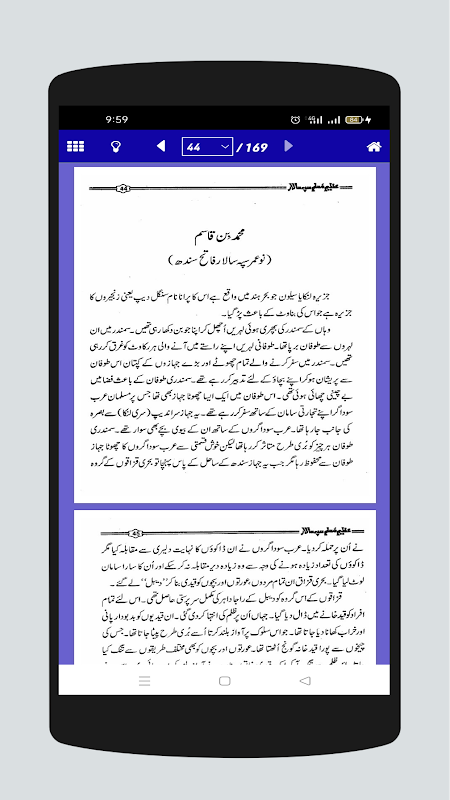 9:59
84
44 / 169
عظیم مسلم سپہ سالار
44
محمد بن قاسم
(نو عمر سپہ سالار فاتح سندھ)
جزیرہ لنکا یا سیلون جو بحر ہند میں واقع ہے اس کا پرانا نام سنگل دیپ یعنی زنجیروں کا
جزیرہ ہے جو اس کی بناوٹ کے باعث پڑ گیا۔
وہاں کے سمندر کی بپھری ہوئی لہریں اُچھل کر اپنا جوبن دکھا رہی تھیں۔ سمندر میں ان
لہروں سے طوفان برپا تھا۔ طوفانی لہریں اپنے راستے میں آنے والی ہر رکاوٹ کو غرق کر رہی
تھیں۔ سمندر میں سفر کرنے والے تمام چھوٹے اور بڑے جہازوں کے کپتان اس طوفان
سے پریشان ہو کر اپنے بچاؤ کے لئے تدبیر کر رہے تھے۔ سمندری طوفان کے باعث فضا میں
بے چینی چھائی ہوئی تھی۔ اس طوفان میں ایک ایسا چھوٹا جہاز بھی تھا جس پر مسلمان عرب
سوداگر اپنے تجارتی سامان کے ساتھ سفر کر رہے تھے۔ یہ جہاز سراندیپ (سری لنکا) سے بصرہ
کی جانب جا رہا تھا۔ عرب سوداگروں کے ساتھ ان کے بیوی بچے بھی سوار تھے۔ سمندری
طوفان ہر چیز کو بُری طرح متاثر کر رہا تھا لیکن خوش قسمتی سے عرب سوداگروں کا چھوٹا جہاز
طوفان سے محفوظ رہا مگر جب یہ جہاز سندھ کے ساحل کے پاس پہنچا تو بحری قزاقوں کے گروہ
عظیم مسلم سپہ سالار
45
نے اُن پر حملہ کر دیا۔ عرب سوداگروں نے ان ڈاکوؤں کا نہایت دلیری سے مقابلہ کیا مگر
ڈاکوؤں کی تعداد زیادہ ہونے کی وجہ سے وہ زیادہ دیر مقابلہ نہ کر سکے اور اُن کا سارا سامان
لوٹ لیا گیا۔ بحری قزاق ان تمام مردوں، عورتوں اور بچوں کو قیدی بنا کر "دیبل" لے گئے۔
قزاقوں کے اس گروہ کو دیبل کے راجا داہر کی مکمل سرپرستی حاصل تھی۔ اس لئے تمام
افراد کو قید خانے میں ڈال دیا گیا۔ جہاں اُن پر ظلم کی انتہا کر دی گئی۔ ان قیدیوں کو بدبودار پانی
اور خراب کھانا دیا جاتا تھا۔ جو اس سلوک پر آواز بلند کرتا اُسے بُری طرح پیٹا جاتا تھا۔ جس کی
چیخوں سے پورا قید خانہ گونج اُٹھتا تھا۔ عورتوں اور بچوں کو بھی مختلف طریقوں سے تنگ کیا